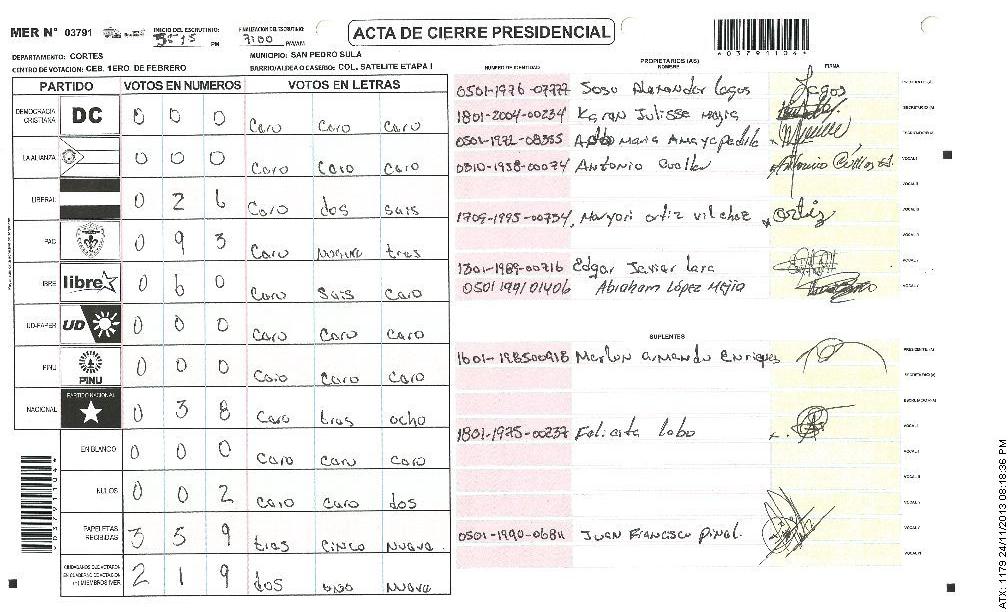 MER N° 03791
INICIO DEL ESCRUTINIO:
5:15 PM
FINALIZACION DEL ESCRUTINIO:
7:00 PM/AM
ACTA DE CIERRE PRESIDENCIAL
4037911044
DEPARTAMENTO: CORTES
MUNICIPIO: SAN PEDRO SULA
CENTRO DE VOTACION: CEB. 1ERO DE FEBRERO
BARRIO/ALDEA O CASERIO: COL. SATELITE ETAPA I
PARTIDO VOTOS EN NUMEROS VOTOS EN LETRAS
DEMOCRACIA CRISTIANA DC 0 0 0 Cero Cero Cero
LA ALIANZA 0 0 0 Cero Cero Cero
LIBERAL 0 2 6 Cero dos seis
PAC 0 9 3 Cero nueve tres
LIBRE libre 0 6 0 Cero Seis Cero
UD-FAPER UD 0 0 0 Cero Cero Cero
PINU PINU 0 0 0 Cero Cero Cero
NACIONAL PARTIDO NACIONAL 0 3 8 Cero tres ocho
EN BLANCO 0 0 0 Cero Cero Cero
NULOS 0 0 2 Cero Cero dos
PAPELETAS RECIBIDAS 3 5 9 tres cinco nueve
2 1 9 dos uno nueve
NUMERO DE IDENTIDAD PROPIETARIOS (AS) NOMBRE FIRMA
0501-1976-07777 Sosu Alexander Lagos Lagos
1801-2004-00234 Karen Julisse Mejia
0501-1972-08355 Maria Amaya Padilla
0310-1938-00074 Antonio
1709-1995-00734 Maryori ortiz vilchez ortiz
1301-1989-00716 Edgar Javier Lara
0501 1991 01406 Abraham López Mejia
SUPLENTES
1601-198500918 Marlon armando Enriquez
1801-1975-00237 Felicita lobo
0501-1990-0684 Juan Francisco Pinel.
ATX: 1179 24/11/2013 08:18:36 PM